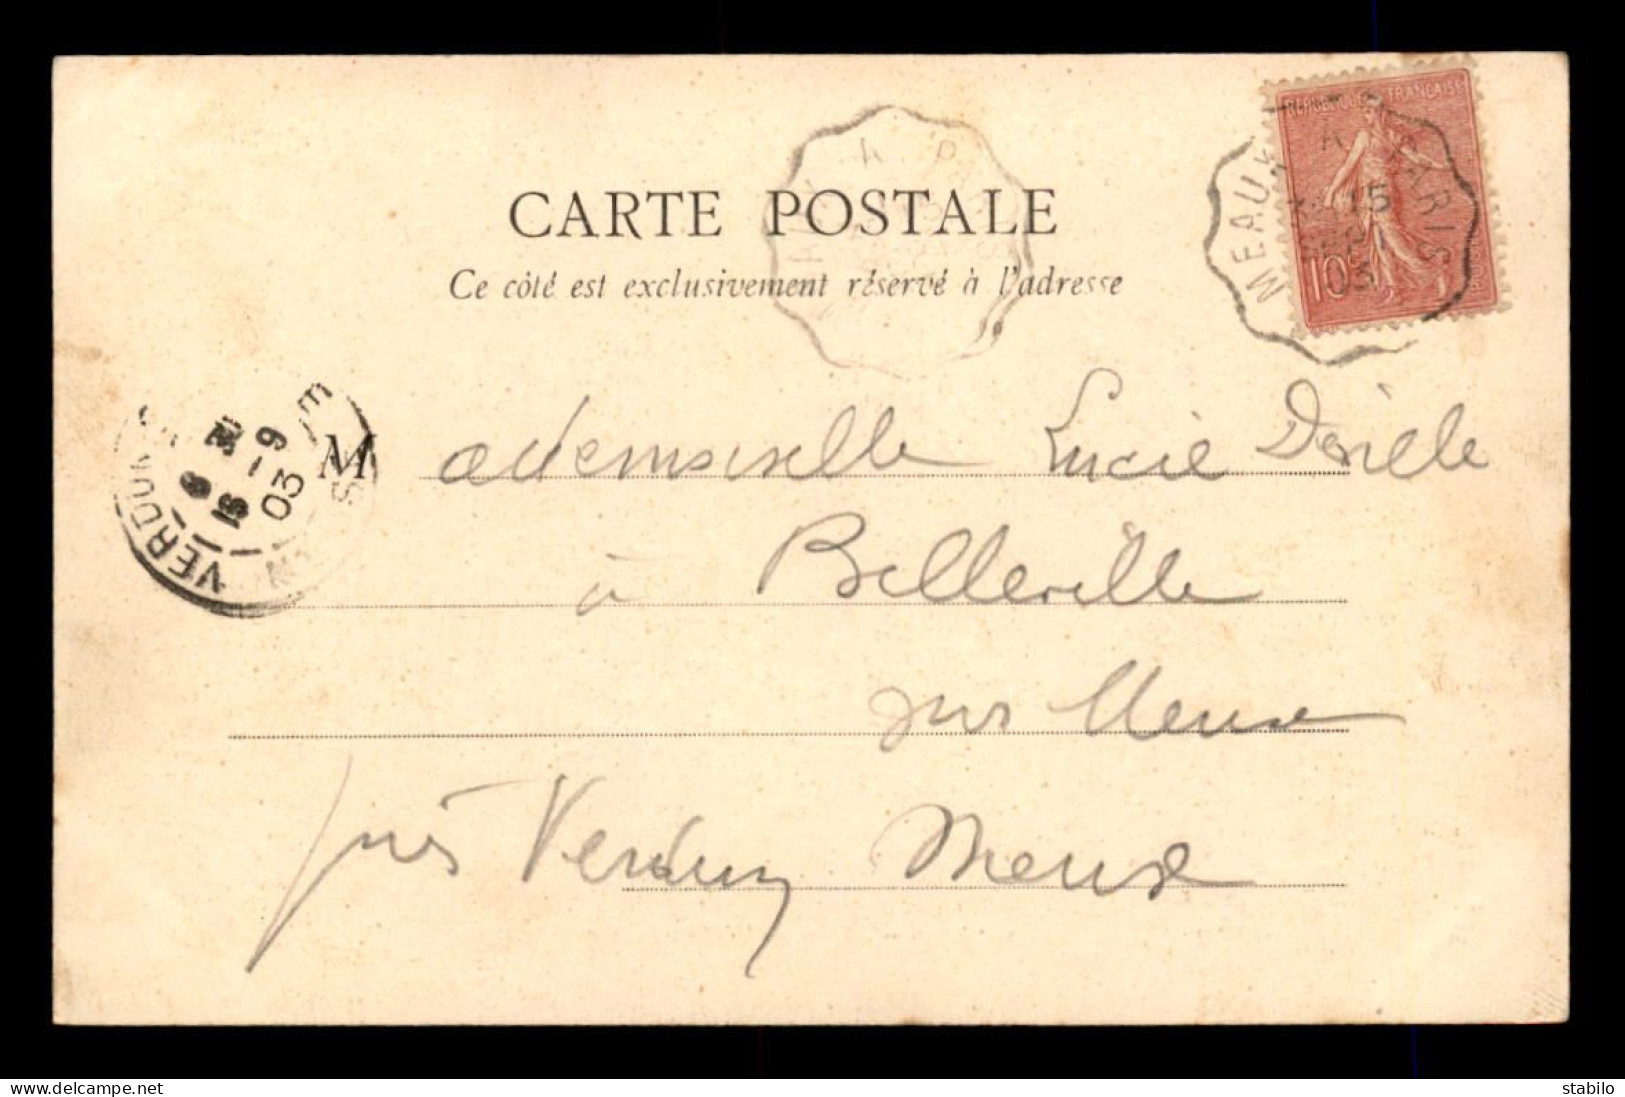 CARTE POSTALE
Ce côté est exclusivement réservé à l'adresse
MEAUX A PARIS
15
SEPT
03
10
FRANÇAISE
VERDUN
16 - 9
03
Mademoiselle Lucie
à Belleville
sur Meuse
près Verdun Meuse
delcampe.net
stabilo